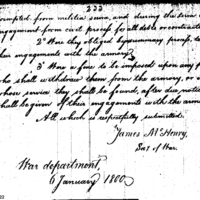 333
exempted from militia service, and during the term of
engagement from civil process for all debts or contracts
2d. Are they obliged by summary process, to
their engagements with the armory
3d. Is a fine to be imposed upon any p
who shall withdraw them from the armory, or a
whose service they shall be found, after due notice
shall be given of their engagements with the armo
All which is respectfully submitted.
James McHenry,
Sec. of War.
War department
6 January 1800